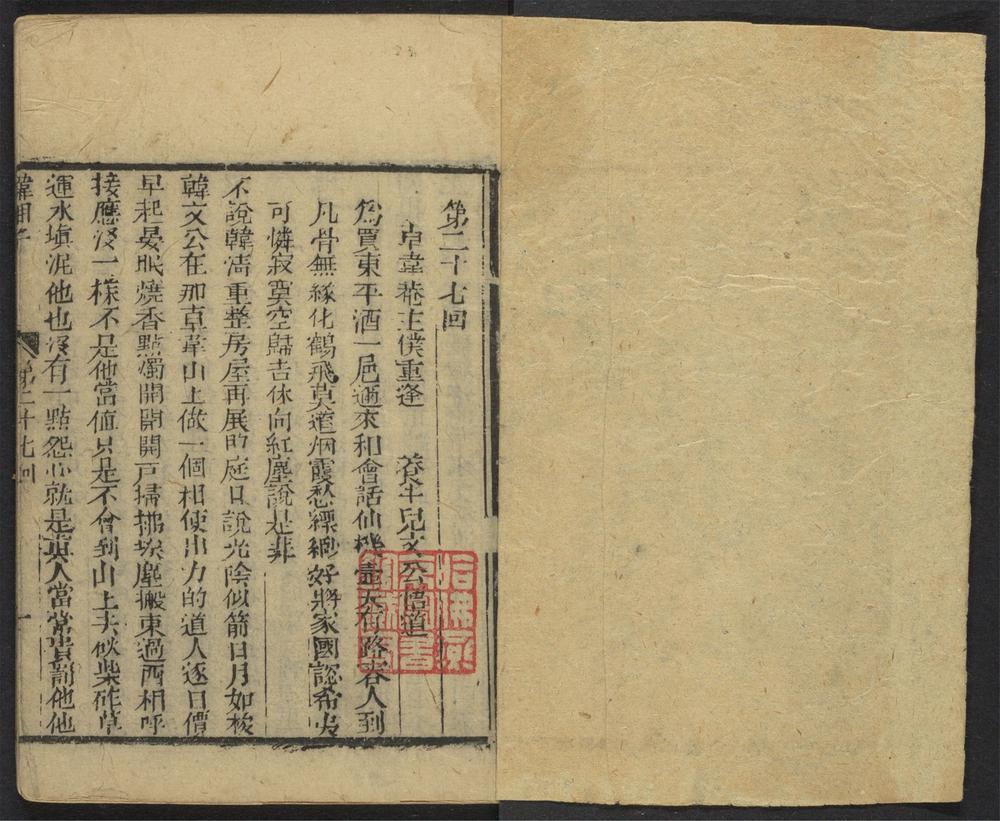 第二十七回
卓韋菴主僕重逢 養牛兒文公悟道
爲買東平酒一巵邇來和會話仙機壷天有路容人到
凡骨無緣化鶴飛莫道烟霞愁縹緲好將家國認希夷
可憐寂寞空歸去休向紅塵說是非
不說韓淸重整房屋再展門庭且說光陰似箭日月如梭
韓文公在那卓韋山上做一個相使出力的道人逐日價
早起晏眠燒香點燭開閉門戸掃拂埃塵搬東過西相呼
接應沒一樣不是他當値只是不會到山上去伙柴砟草
運水塡泥他也沒有一點怨心就是眞人當常責罰他他
韓湘子
第二十七回
一